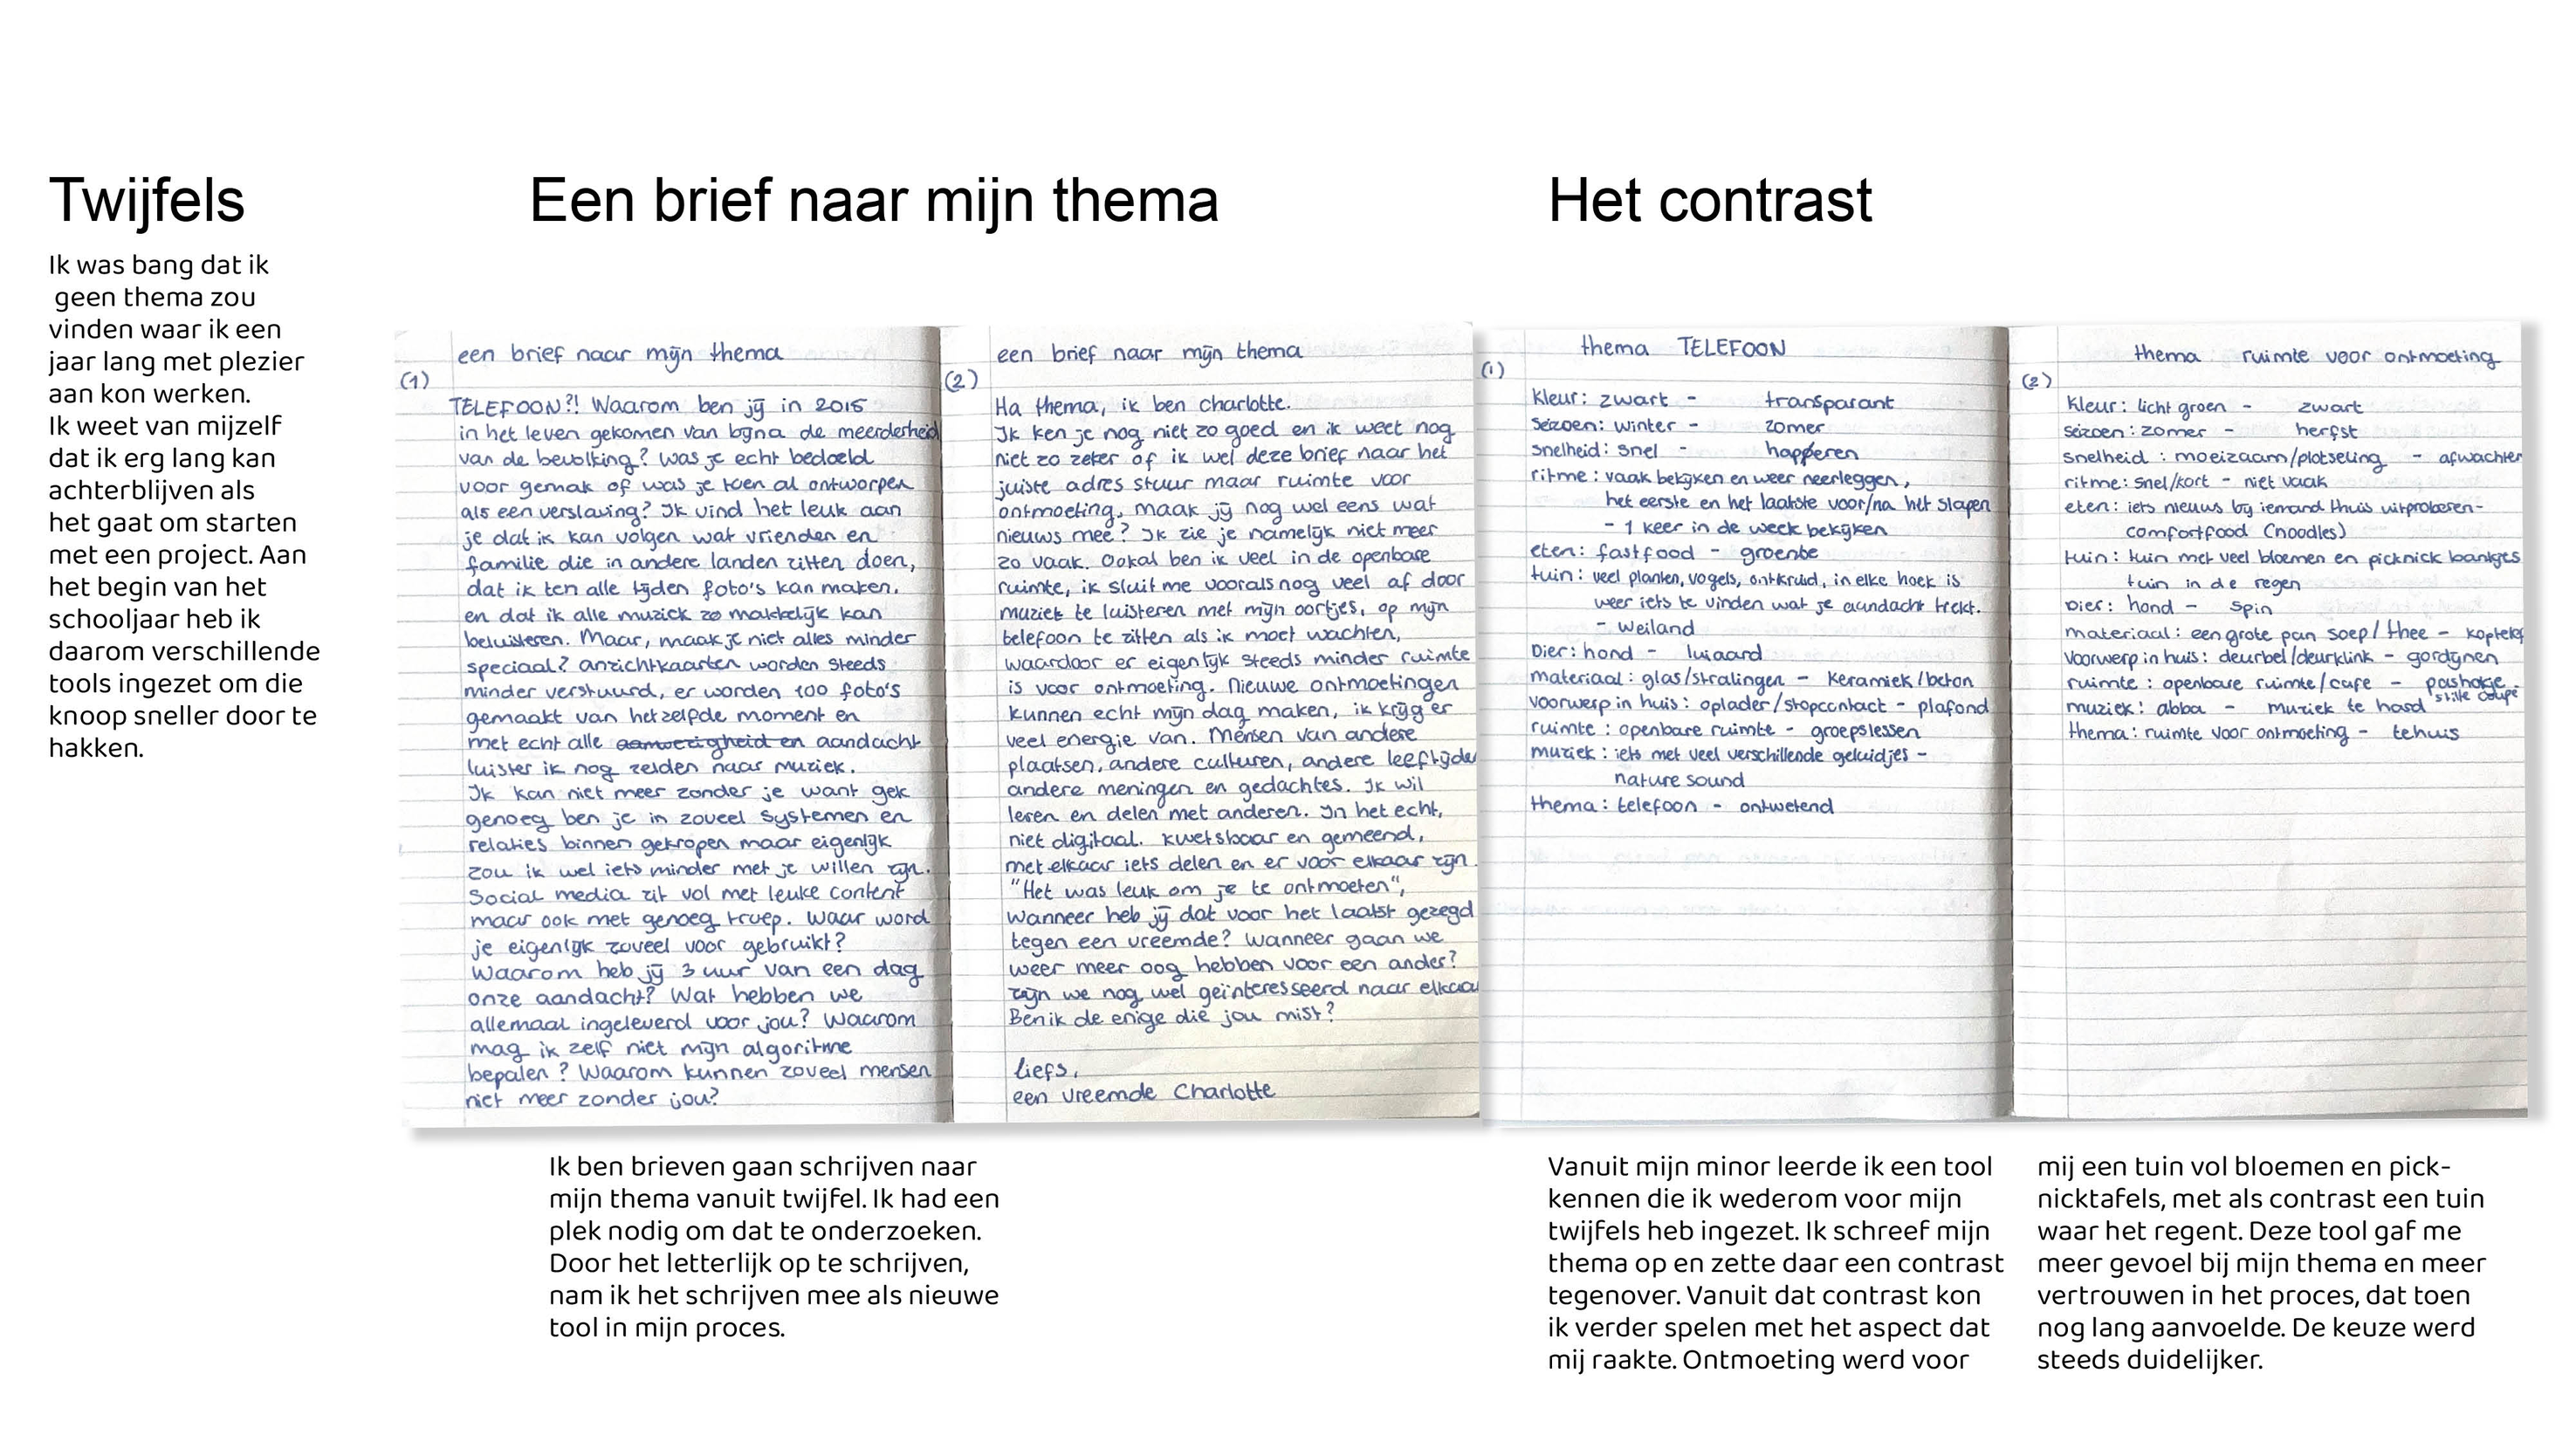 Twijfels
Ik was bang dat ik
geen thema zou
vinden waar ik een
jaar lang met plezier
aan kon werken.
Ik weet van mijzelf
dat ik erg lang kan
achterblijven als
het gaat om starten
met een project. Aan
het begin van het
schooljaar heb ik
daarom verschillende
tools ingezet om die
knoop sneller door te
hakken.
Een brief naar mijn thema
een brief naar mijn thema
(1)
TELEFOON?! Waarom ben jij in 2015
in het leven gekomen van bijna de meerderheid
van de bevolking? Was je echt bedoeld
voor gemak of was je toen al ontworpen
als een verslaving? Ik vind het leuk aan
je dat ik kan volgen wat vrienden en
familie die in andere landen zitten doen,
dat ik ten alle tijden foto's kan maken.
en dat ik alle muziek zo makkelijk kan
beluisteren. Maar, maak je niet alles minder
speciaal? anzichtkaarten worden steeds
minder verstuurd, er worden 100 foto's
gemaakt van hetzelfde moment en
met echt alle aanwezigheid en aandacht
luister ik nog zelden naar muziek.
Ik kan niet meer zonder je want gek
genoeg ben je in zoveel systemen en
relaties binnen gekropen maar eigenlijk
zou ik wel iets minder met je willen zijn.
Social media zit vol met leuke content
maar ook met genoeg troep. Waar word
je eigenlijk zoveel voor gebruikt?
Waarom heb jij 3 uur van een dag
onze aandacht? Wat hebben we
allemaal ingeleverd voor jou? Waarom
mag ik zelf niet mijn algoritme
bepalen? Waarom kunnen zoveel mensen
niet meer zonder jou?
een brief naar mijn thema
(2)
Ha thema, ik ben charlotte.
Ik ken je nog niet zo goed en ik weet nog
niet zo zeker of ik wel deze brief naar het
juiste adres stuur maar ruimte voor
ontmoeting, maak jij nog wel eens wat
nieuws mee? Ik zie je namelijk niet meer
zo vaak. Ookal ben ik veel in de openbare
ruimte, ik sluit me vooralsnog veel af door
muziek te luisteren met mijn oortjes, op mijn
telefoon te zitten als ik moet wachten,
waardoor er eigenlijk steeds minder ruimte
is voor ontmoeting. Nieuwe ontmoetingen
kunnen echt mijn dag maken, ik krijg er
veel energie van. Mensen van andere
plaatsen, andere culturen, andere leeftijde
andere meningen en gedachtes. Ik wil
leren en delen met anderen. In het echt,
niet digitaal. kwetsbaar en gemeend,
met elkaar iets delen en er voor elkaar zijn.
"Het was leuk om je te ontmoeten",
wanneer heb jij dat voor het laatst gezegd
tegen een vreemde? Wanneer gaan we
weer meer oog hebben voor een ander?
zijn we nog wel geïnteresseerd naar elkaa
Ben ik de enige die jou mist?
liefs,
een vreemde Charlotte
Ik ben brieven gaan schrijven naar
mijn thema vanuit twijfel. Ik had een
plek nodig om dat te onderzoeken.
Door het letterlijk op te schrijven,
nam ik het schrijven mee als nieuwe
tool in mijn proces.
Het contrast
thema TELEFOON
(1)
kleur: zwart - transparant
seizoen: winter - zomer
snelheid: snel - happeren
ritme: vaak bekijken en weer neerleggen,
het eerste en het laatste voor/na het slapen
- 1 keer in de week bekijken
eten: fastfood - groente
tuin: veel planten, vogels, ontkruid, in elke hoek is
weer iets te vinden wat je aandacht trekt.
- weiland
Dier: hond - luiaard
materiaal: glas/stralingen - keramiek/beton
voorwerp in huis: oplader/stopcontact - plafond
ruimte: openbare ruimte - groepslessen
muziek: iets met veel verschillende geluidjes -
nature sound
thema: telefoon - ontwetend
thema ruimte voor ontmoeting
(2)
kleur: licht groen - zwart
seizoen: zomer - herfst
snelheid: moeizaam/plotseling - afwachten
ritme: snel/kort - niet vaak
eten: iets nieuws bij iemand thuis uitproberen-
comfortfood (noodles)
tuin: tuin met veel bloemen en picknick bankjes
tuin in de regen
Dier: hond - spin
materiaal: een grote pan soep/thee -
voorwerp in huis: deurbel/deurklink - gordijnen
ruimte: openbare ruimte/cafe - pashokje
stilte coupé
muziek: abba - muziek te hard
thema: ruimte voor ontmoeting - tehuis
Vanuit mijn minor leerde ik een tool
kennen die ik wederom voor mijn
twijfels heb ingezet. Ik schreef mijn
thema op en zette daar een contrast
tegenover. Vanuit dat contrast kon
ik verder spelen met het aspect dat
mij raakte. Ontmoeting werd voor
mij een tuin vol bloemen en pick-
nicktafels, met als contrast een tuin
waar het regent. Deze tool gaf me
meer gevoel bij mijn thema en meer
vertrouwen in het proces, dat toen
nog lang aanvoelde. De keuze werd
steeds duidelijker.